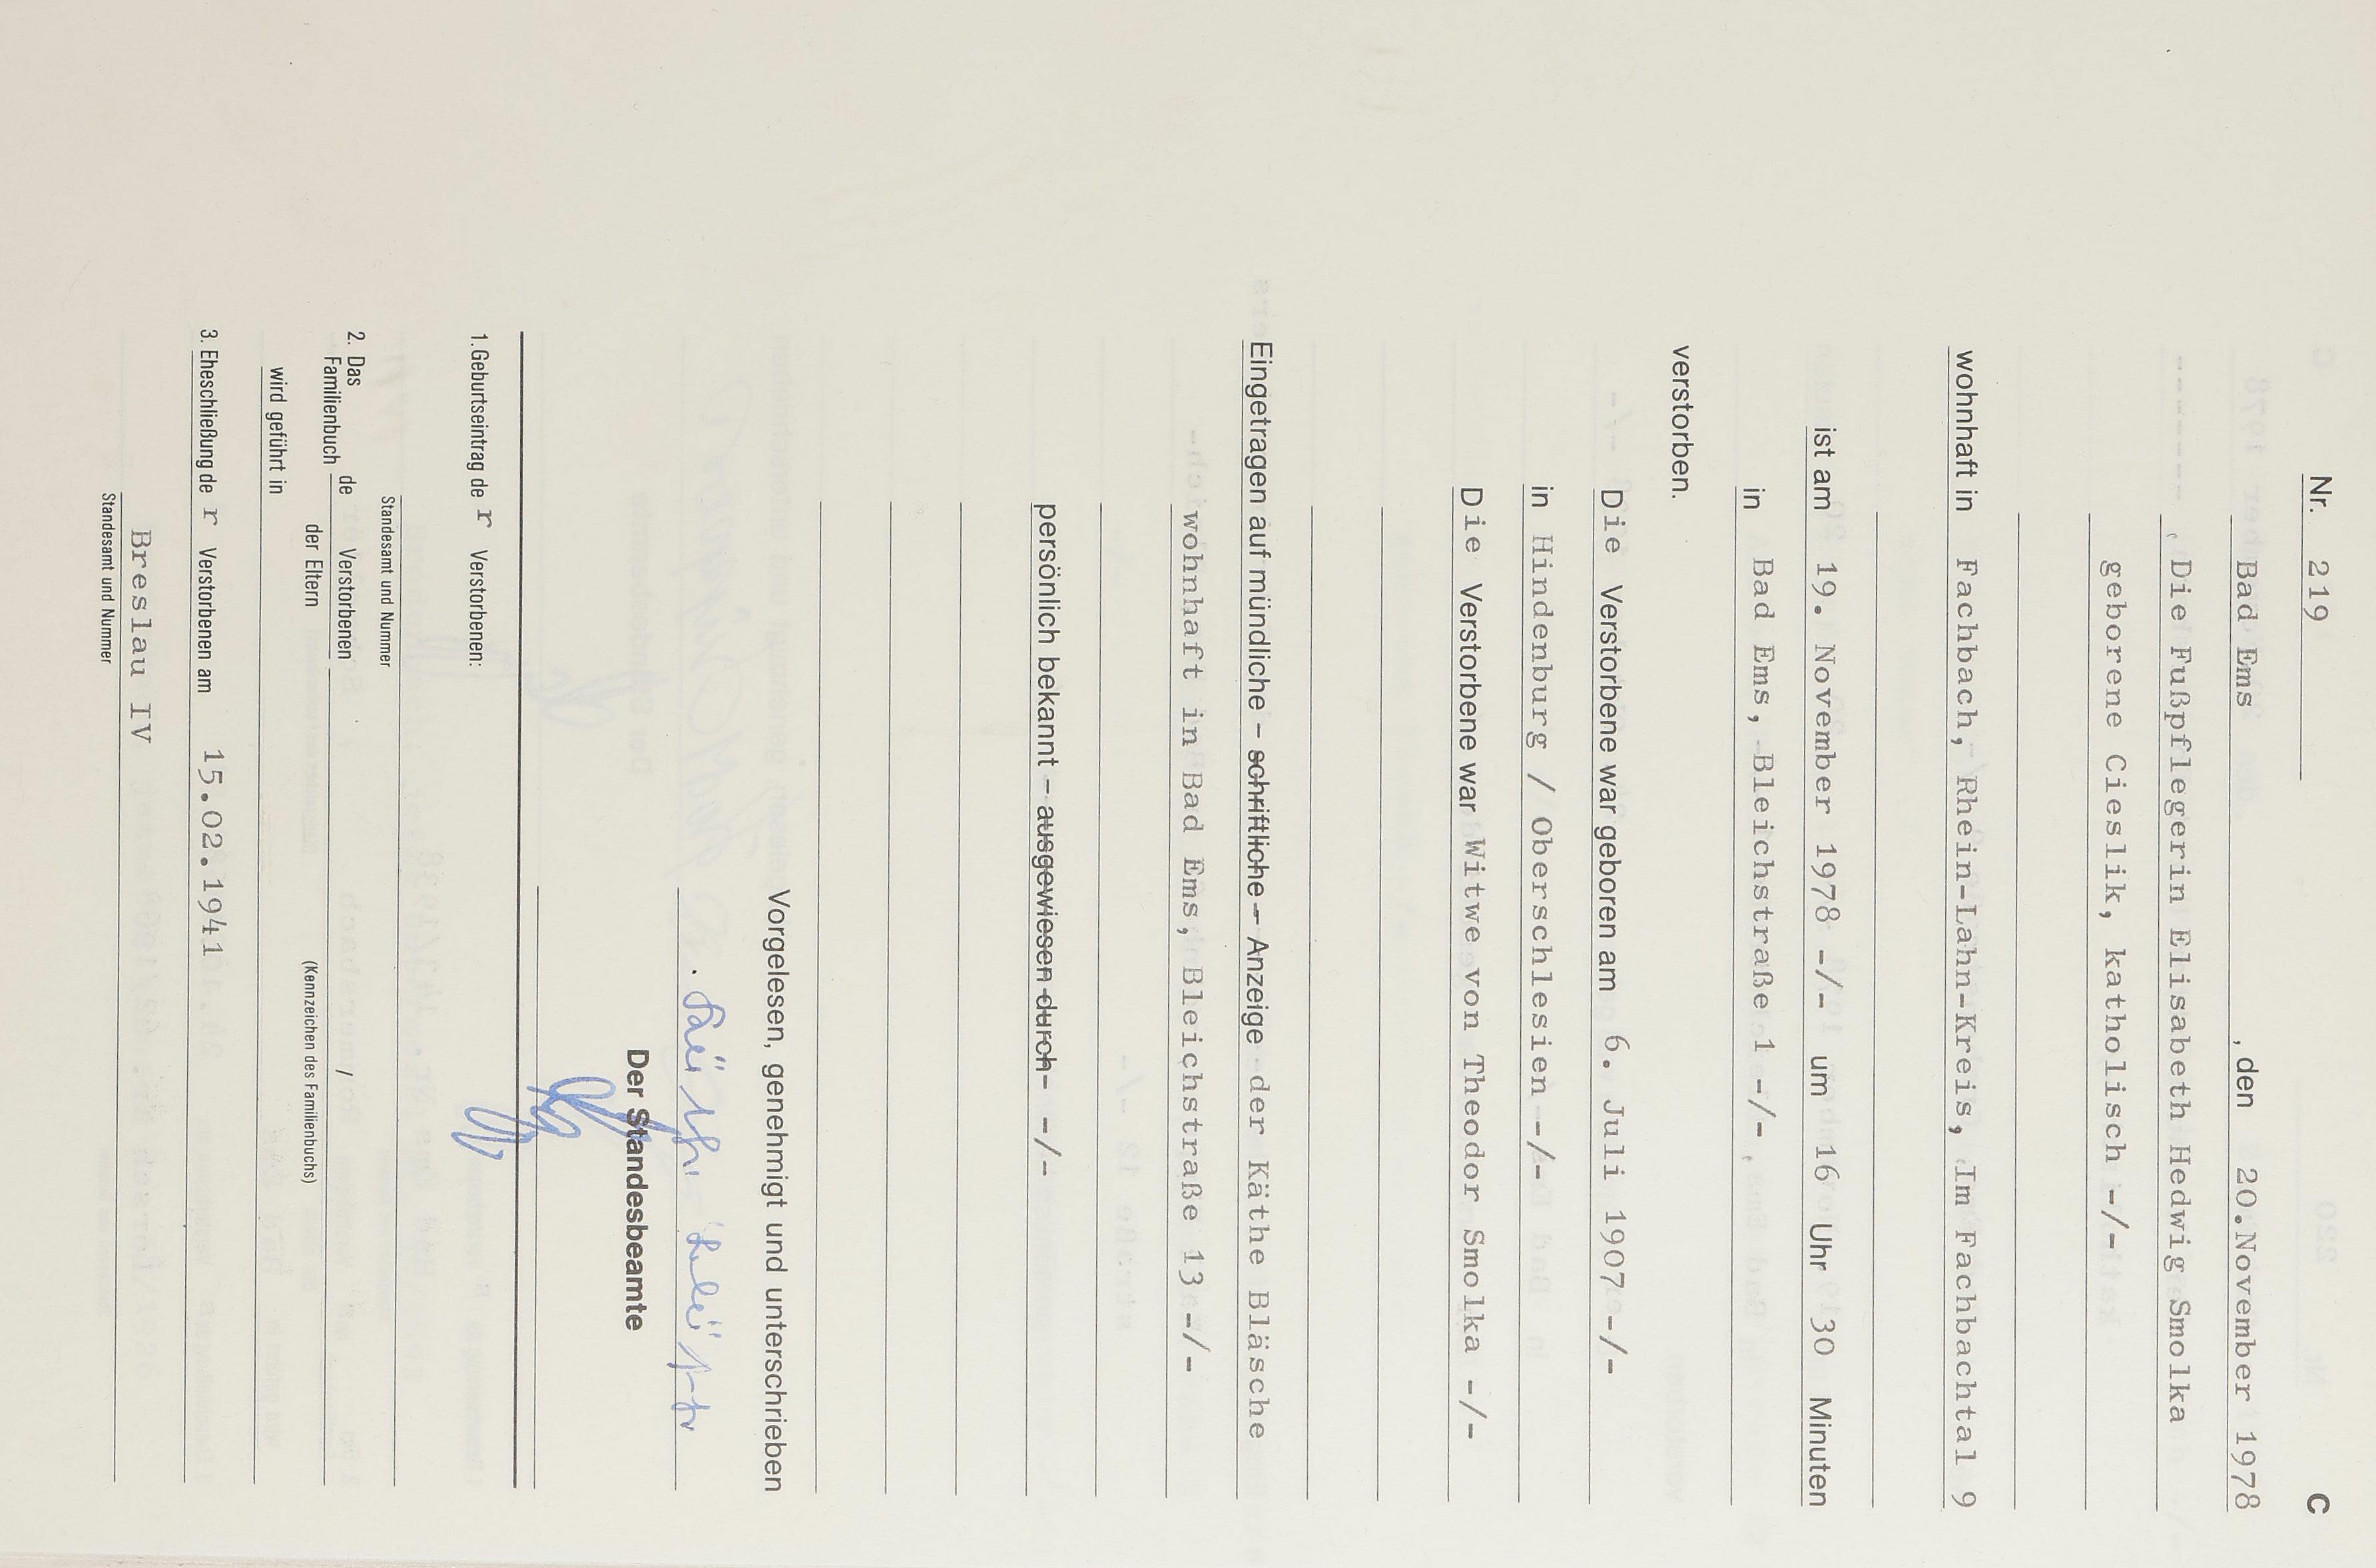 Nr. 219 C
Bad Ems , den 20.November 1978
Die Fußpflegerin Elisabeth Hedwig Smolka
geborene Cieslik, katholisch -/-
wohnhaft in Fachbach, Rhein-Lahn-Kreis, Im Fachbachtal 9
ist am 19. November 1978 -/- um 16 Uhr 30 Minuten
in Bad Ems, Bleichstraße 1 -/-
verstorben.
Die Verstorbene war geboren am 6. Juli 1907 -/-
in Hindenburg / Oberschlesien -/-
Die Verstorbene war Witwe von Theodor Smolka -/-
Eingetragen auf mündliche – schriftliche – Anzeige der Käthe Bläsche
wohnhaft in Bad Ems, Bleichstraße 13 -/-
persönlich bekannt – ausgewiesen durch -/-
Vorgelesen, genehmigt und unterschrieben
Der Standesbeamte
1. Geburtseintrag de r Verstorbenen:
Standesamt und Nummer
2. Das Familienbuch de Verstorbenen /
der Eltern (Kennzeichen des Familienbuchs)
wird geführt in
3. Eheschließung de r Verstorbenen am 15.02.1941
Breslau IV
Standesamt und Nummer